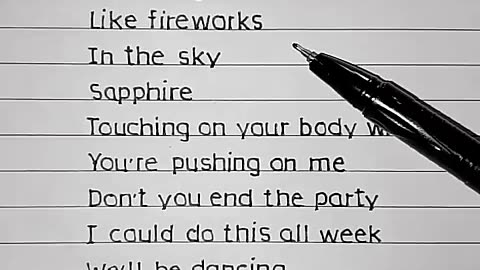 Like fireworks
In the sky
Sapphire
Touching on your body
You're pushing on me
Don't you end the party
I could do this all week
We'll be dancing